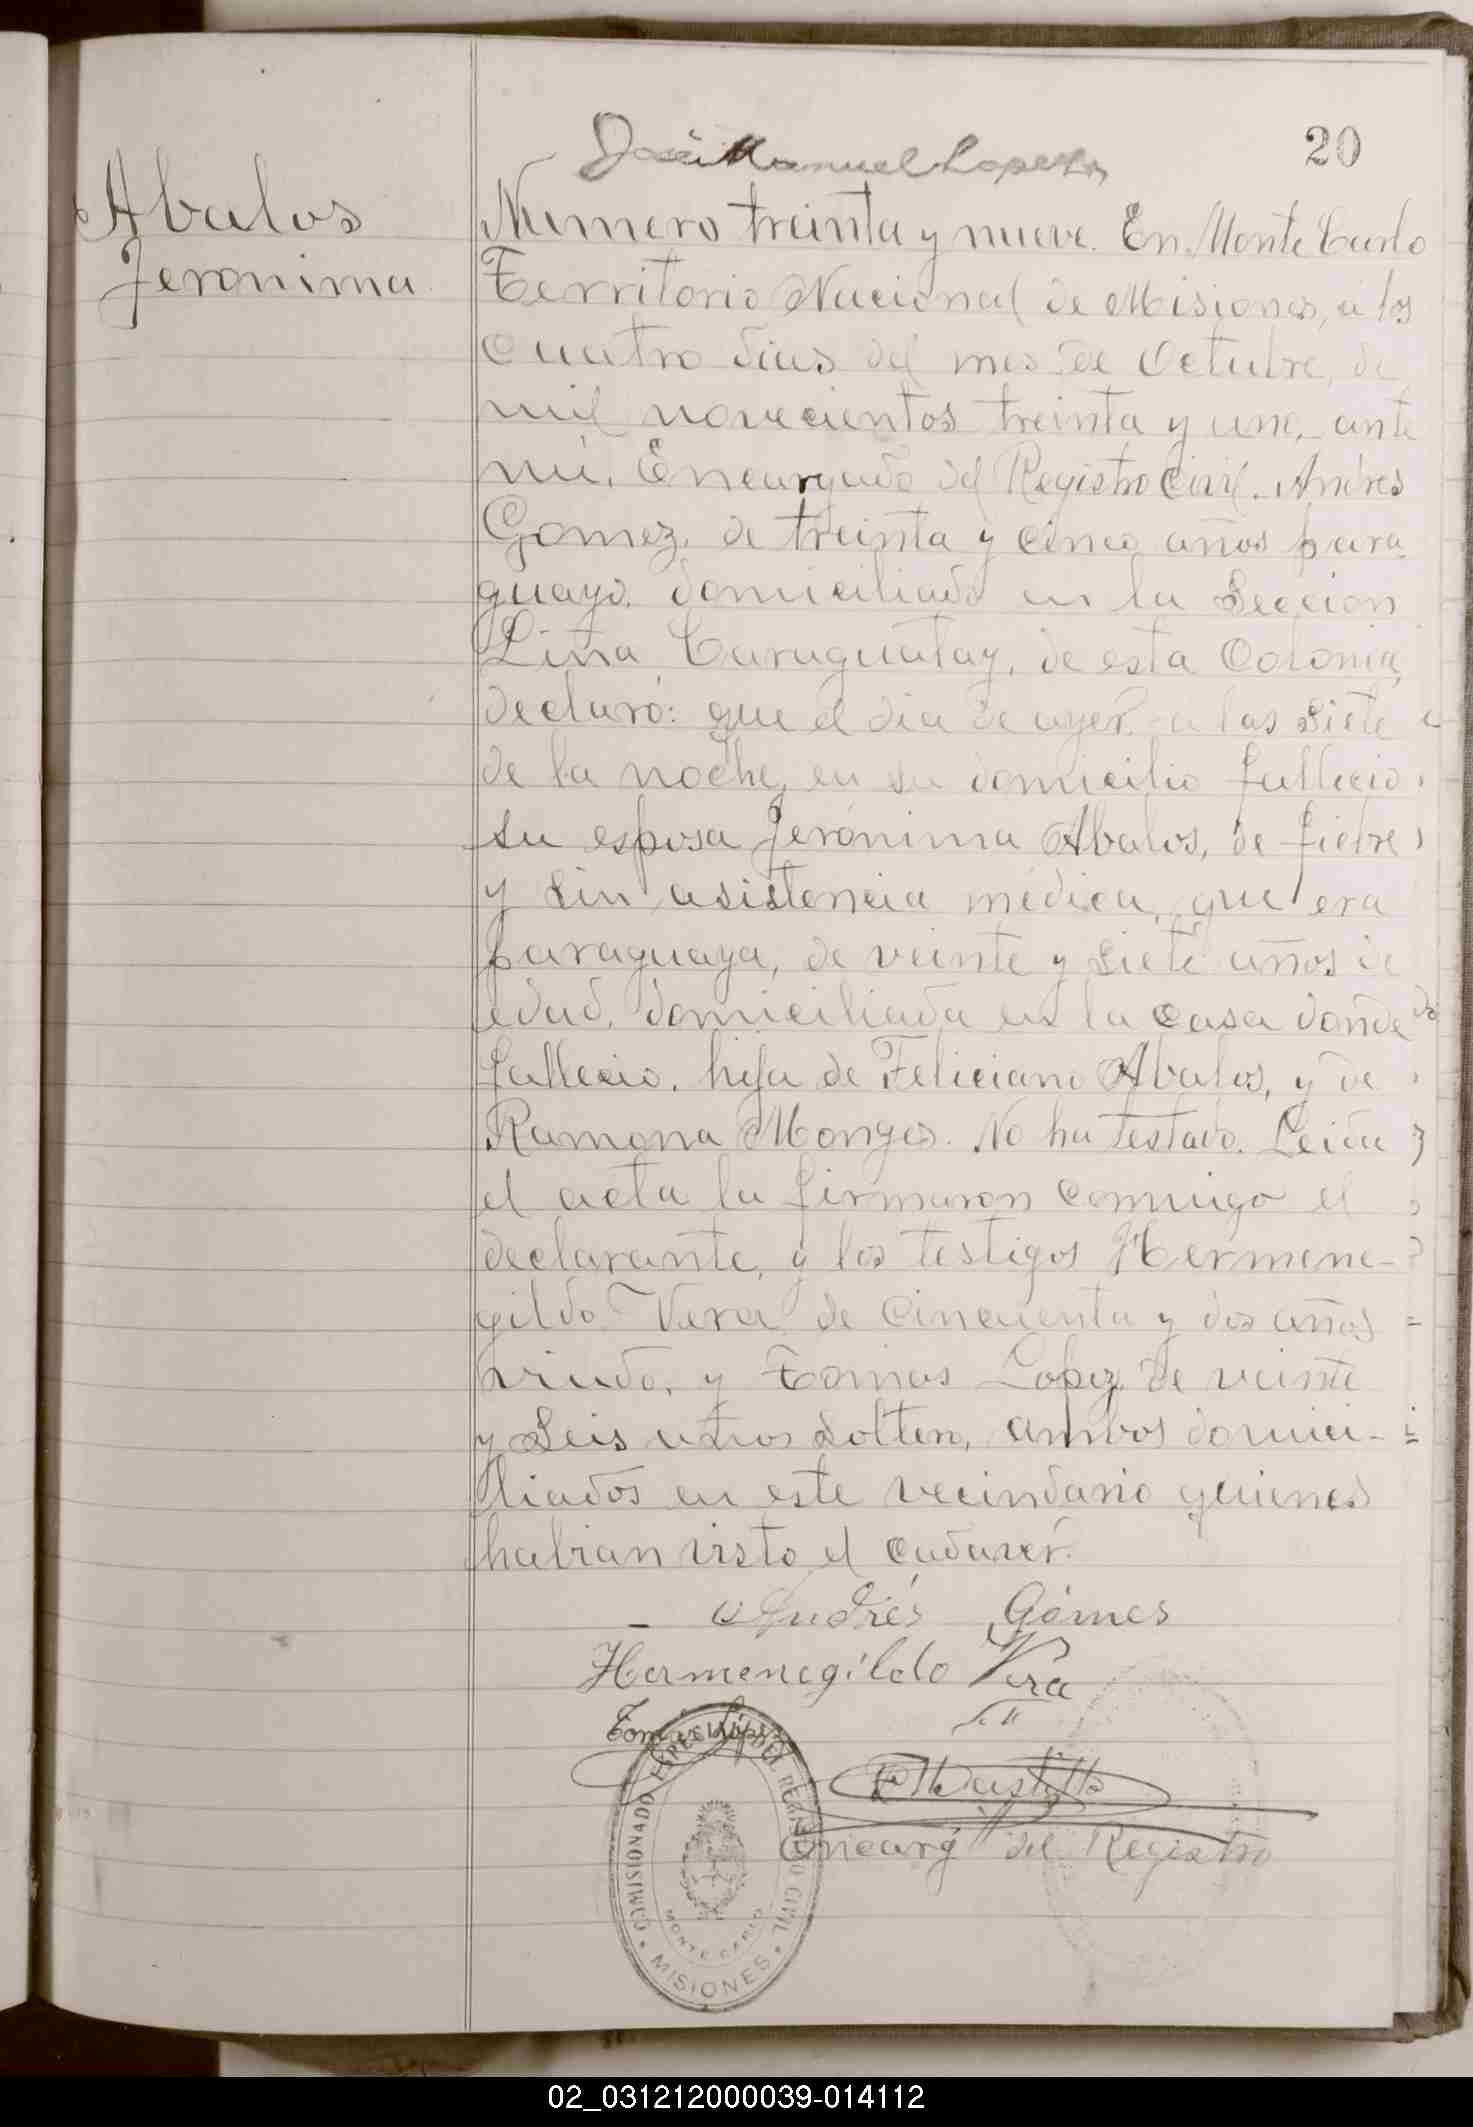 20
José Manuel Lopez
Abalos
Jeronima
Numero treinta y nueve. En Monte Carlo
Territorio Nacional de Misiones, a los
cuatro dias del mes de Octubre, de
mil novecientos treinta y uno, ante
mi, Encargado del Registro Civil. Andres
Gomez, de treinta y cinco años para
guayo, domiciliado en la Seccion
Liña Caraguatay, de esta Colonia,
declaró: que el dia de ayer a las siete
de la noche, en su domicilio fallecio
su esposa Jerónima Abalos, de fiebre
y sin asistencia médica, que era
paraguaya, de veinte y siete años de
edad, domiciliada en la casa donde
fallecio, hija de Feliciano Abalos, y de
Ramona Monges. No ha testado. Leida
el acta la firmaron conmigo el
declarante, y los testigos Hermene-
gildo Vera de cincuenta y dos años
viudo, y Tomas Lopez de veinte
y seis años soltero, ambos domici-
liados en este vecindario quienes
habian visto el cadaver.
Andrés Gómes
Hermenegildo Vera
Tomas López
Encarg del Registro
COMISIONADO ESPECIAL DEL REGISTRO CIVIL
MONTE CARLO
MISIONES
02_031212000039-014112